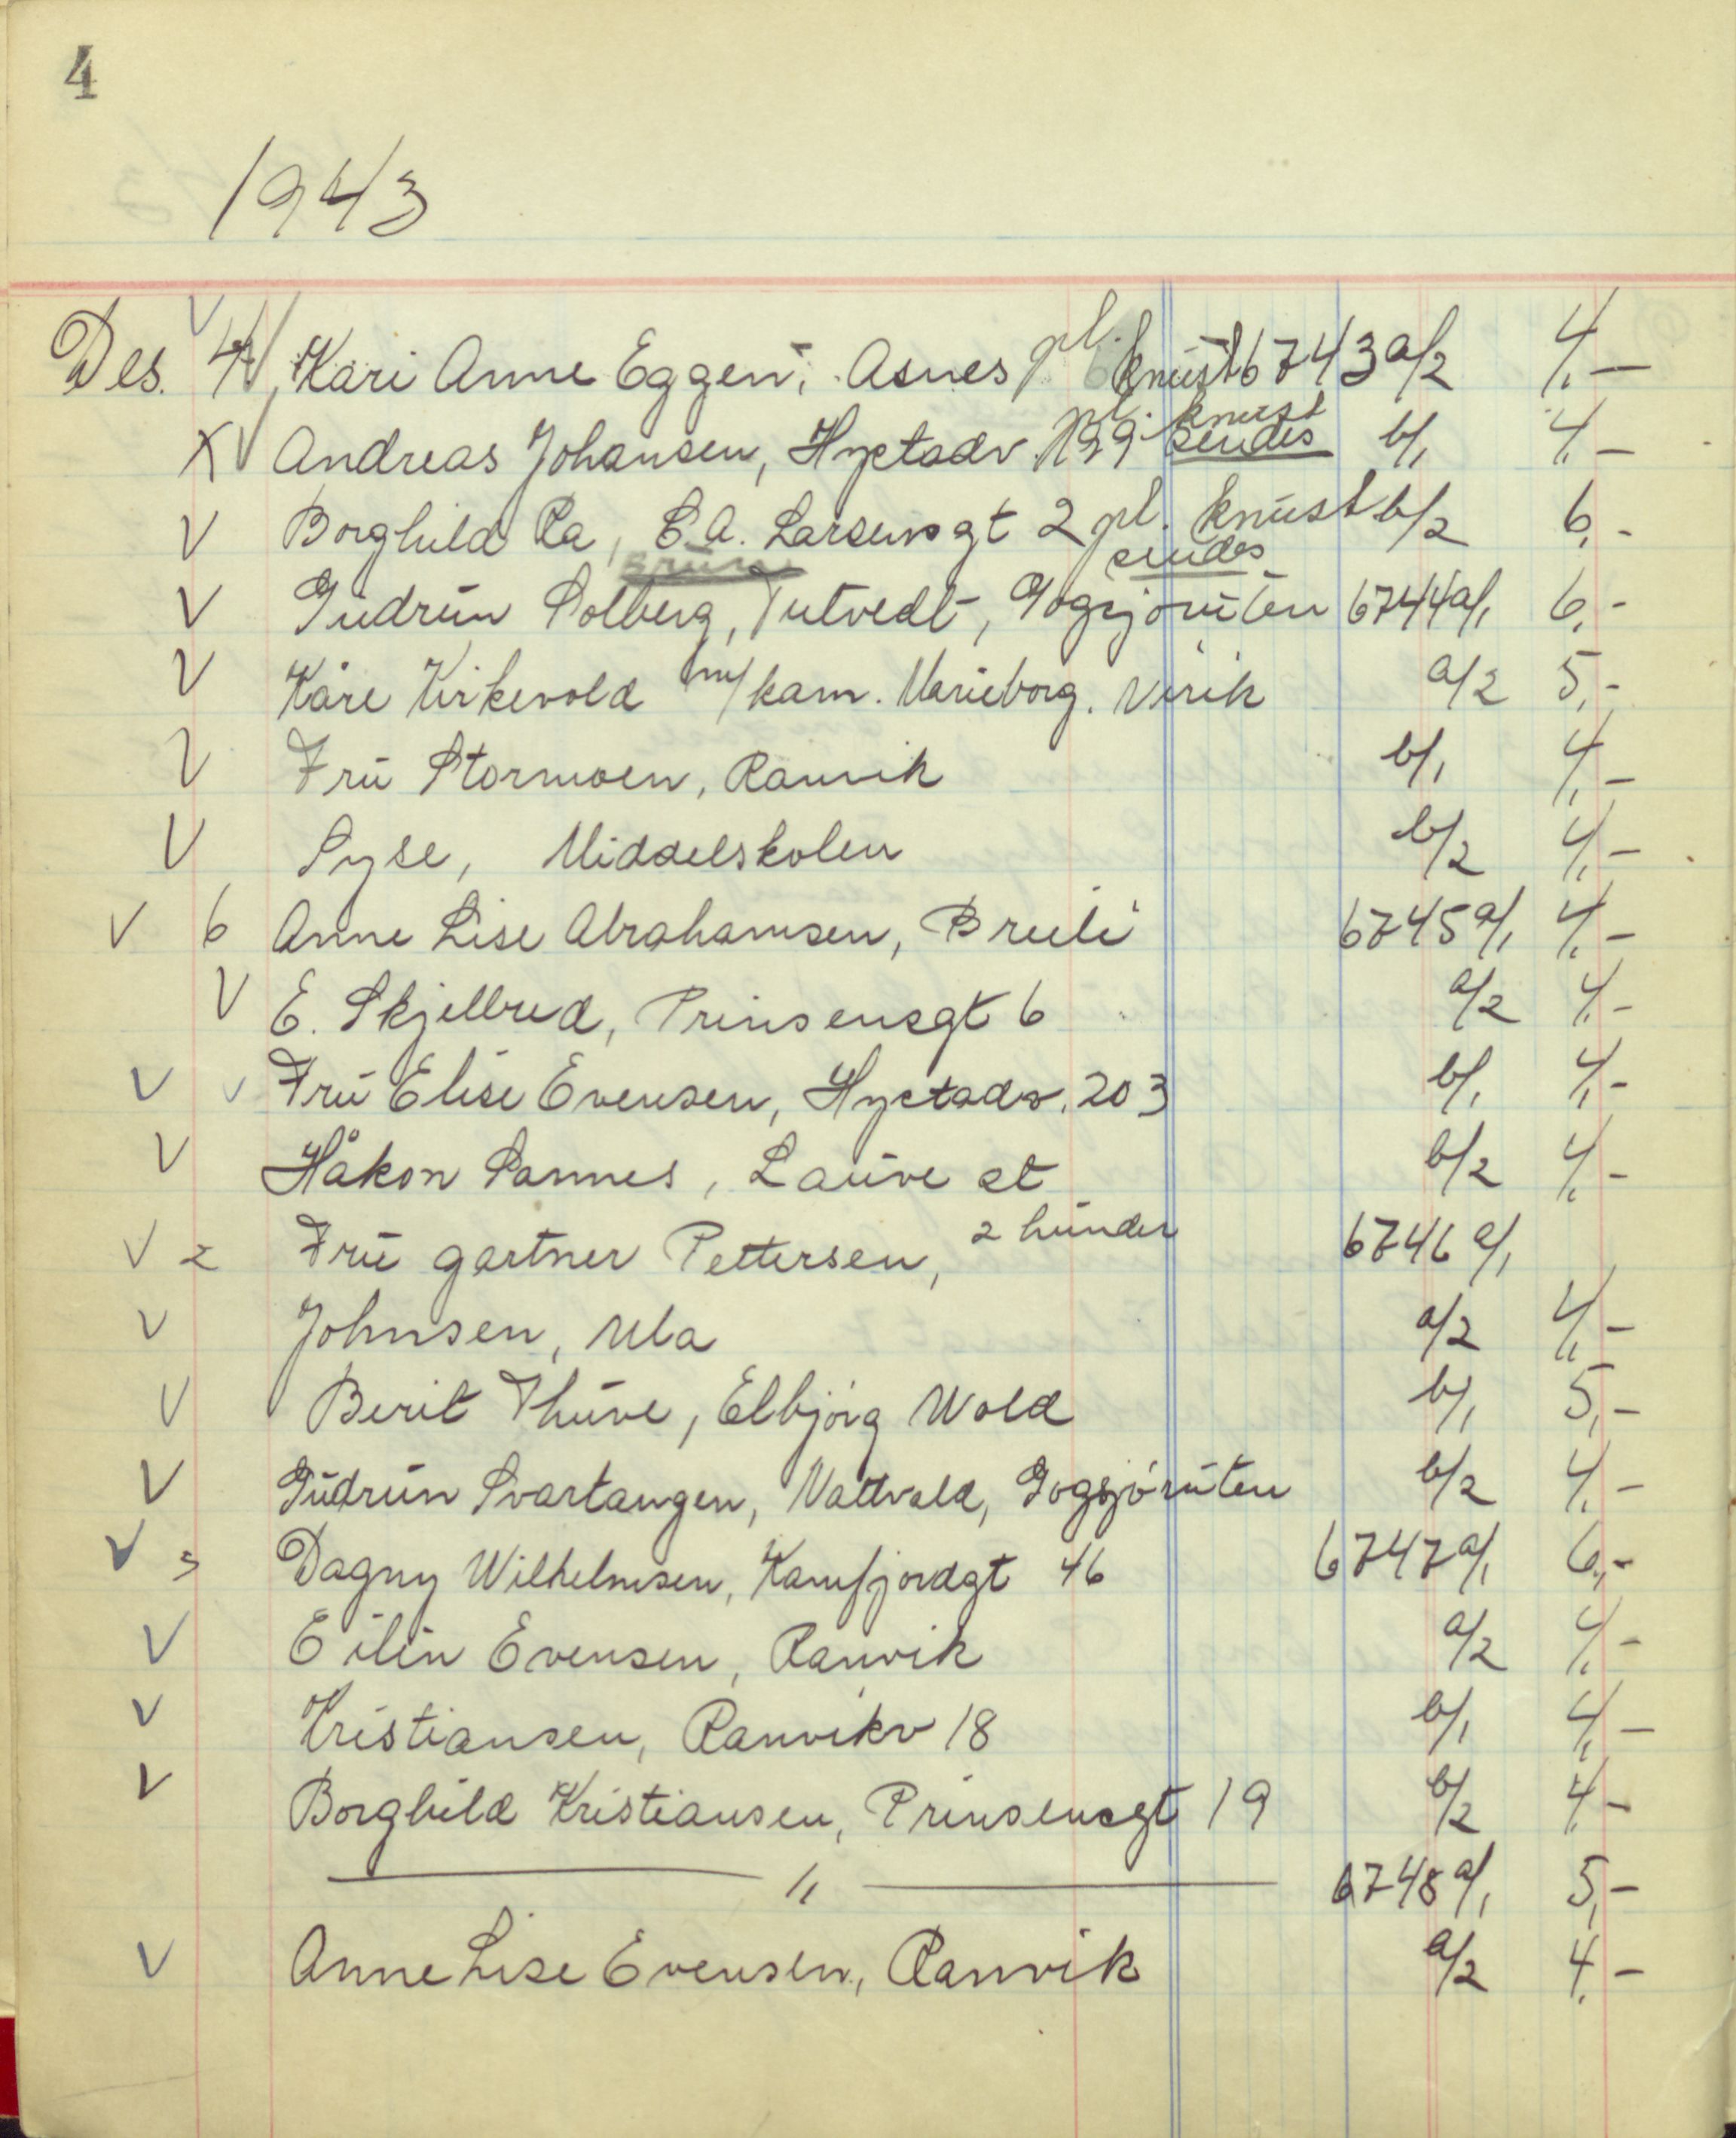 4
1943
Des. 4 V Kari Anne Eggen, Asnes pl. knust 6743 a/2 4,-
X V Andreas Johansen, Hystadv. 199 pl. knust sendes b/1 4,-
V Borghild Ra, C.A. Larsensgt 2 pl. knust b/2 6,-
V Gudrun Solberg, Tutvedt, Gogsjøruten sendes 6744 a/1 6,-
V Kåre Kirkevold m/kam. Marieborg. Virik a/2 5,-
V Fru Stormoen, Ranvik b/1 4,-
V Syse, Middelskolen b/2 4,-
V 6 Anne Lise Abrahamsen, Breili 6745 a/1 4,-
V E. Skjelbred, Prinsensgt 6 a/2 4,-
V V Fru Elise Evensen, Hystadv. 203 b/1 4,-
V Håkon Sannes, Lauve st b/2 4,-
V 2 Fru gartner Pettersen, 2 hunder 6746 a/1
V Johnsen, Ula a/2 4,-
V Berit Thuve, Elbjørg Wold b/1 5,-
V Gudrun Svartangen, Nattvald, Gogsjøruten b/2 4,-
V 3 Dagny Wilhelmsen, Kamfjordgt 46 6747 a/1 6,-
V Eilin Evensen, Ranvik a/2 4,-
V Kristiansen, Ranvikv 18 b/1 4,-
V Borghild Kristiansen, Prinsensgt 19 b/2 4,-
— " — 6748 a/1 5,-
V Anne Lise Evensen, Ranvik a/2 4,-